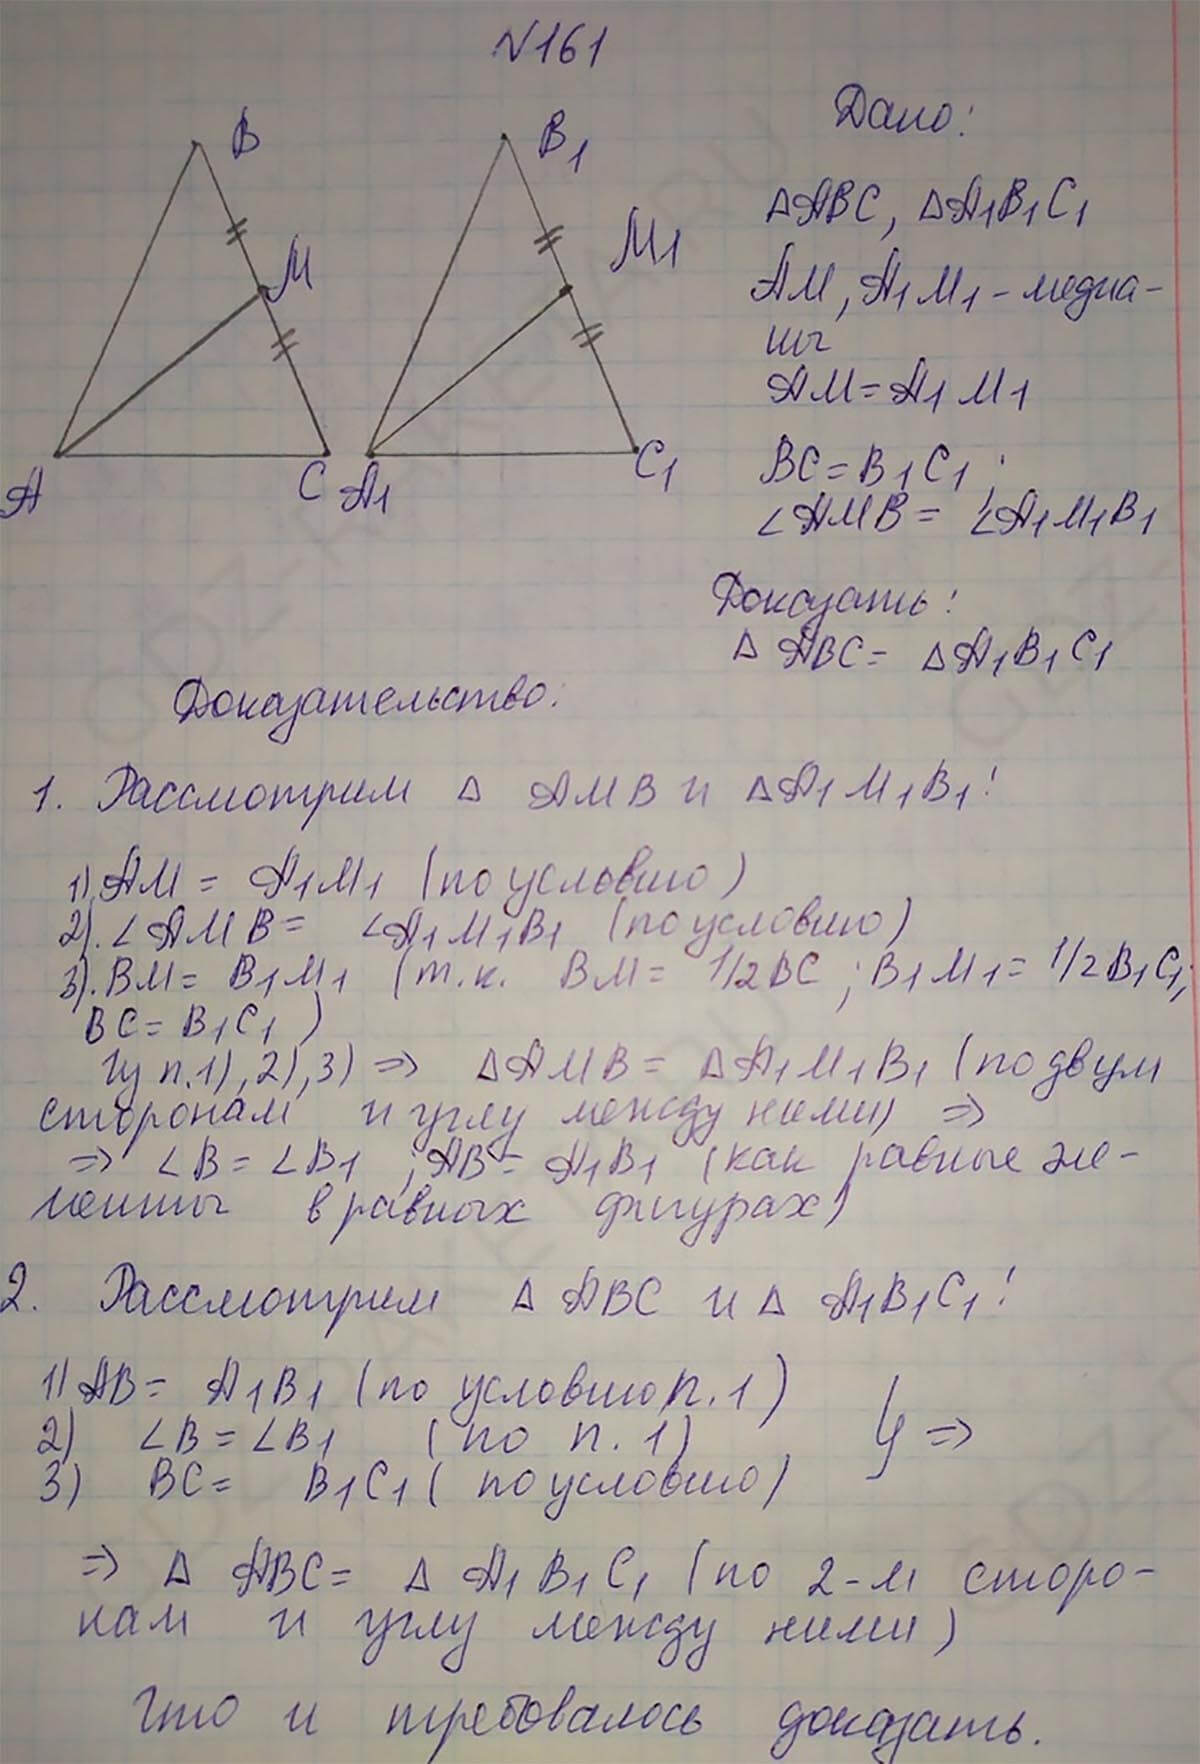 №161
B
B1
M
M1
A
C
A1
C1
Дано:
△ABC, △A1B1C1
AM, A1M1 - медиа-
ны
AM = A1M1
BC = B1C1;
∠AMB = ∠A1M1B1
Доказать:
△ ABC = △A1B1C1
Доказательство:
1. Рассмотрим △ AMB и △A1M1B1:
1) AM = A1M1 (по условию)
2). ∠AMB = ∠A1M1B1 (по условию)
3). BM = B1M1 (т.к. BM = 1/2BC ; B1M1 = 1/2B1C1;
BC = B1C1)
Из п.1), 2), 3) => △AMB = △A1M1B1 (по двум
сторонам и углу между ними) =>
=> ∠B = ∠B1 ; AB = A1B1 (как равные эле-
менты в равных фигурах)
2. Рассмотрим △ ABC и △ A1B1C1:
1) AB = A1B1 (по условию п.1)
2) ∠B = ∠B1 (по п.1)
3) BC = B1C1 (по условию)
} =>
=> △ ABC = △ A1B1C1 (по 2-м сторо-
нам и углу между ними)
Что и требовалось доказать.